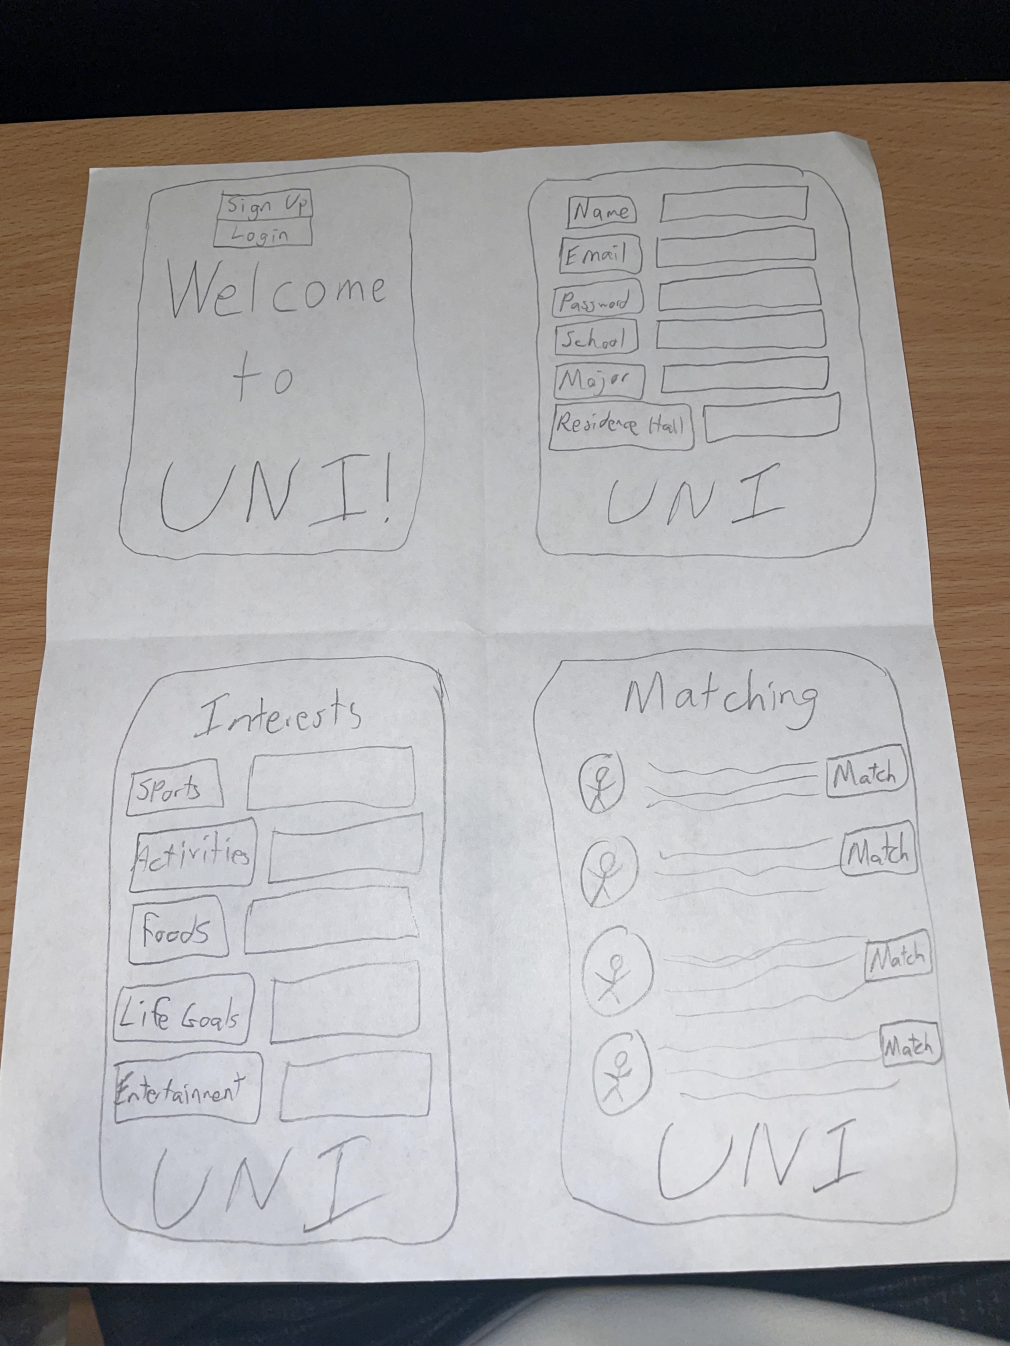 Sign Up
Login
Welcome
to
UNI!
Name
Email
Password
School
Major
Residence Hall
UNI
Interests
Sports
Activities
Foods
Life Goals
Entertainment
UNI
Matching
Match
Match
Match
Match
UNI